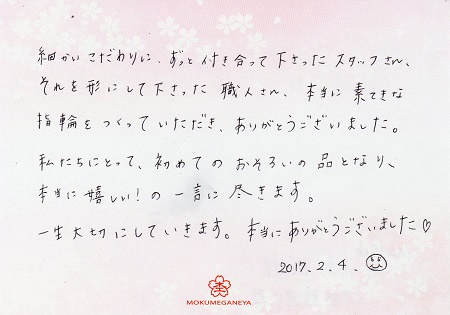 細かいこだわりに、ずっと付き合って下さったスタッフさん、
それを形にして下さった職人さん、本当に素てきな
指輪をつくっていただき、ありがとうございました。
私たちにとって、初めてのおそろいの品となり、
本当に嬉しい!の一言に尽きます。
一生大切にしていきます。本当にありがとうございました♡
2017.2.4.
MOKUMEGANEYA